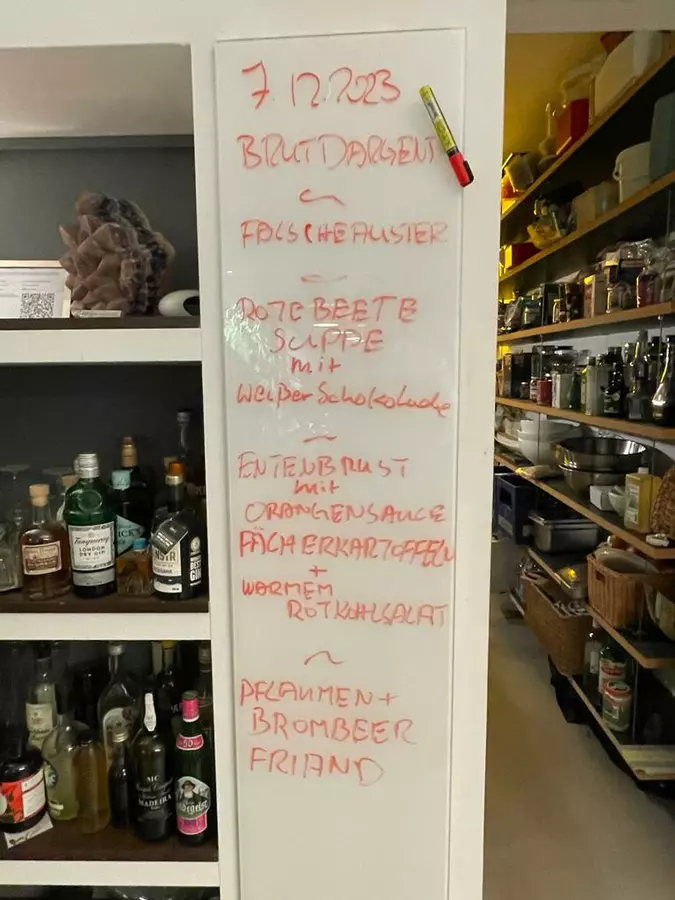 7.12.2023
BRUTDARGENT
~
FALSCHE AUSTER
~
ROTE BEETE
SUPPE
mit
weißer Schokolade
~
ENTENBRUST
mit
ORANGENSAUCE
FÄCHERKARTOFFELN
+
WARMEM
ROTKOHLSALAT
~
PFLAUMEN +
BROMBEER
FRIAND
Tanqueray
LONDON
DRY GIN
GIN
MADEIRA